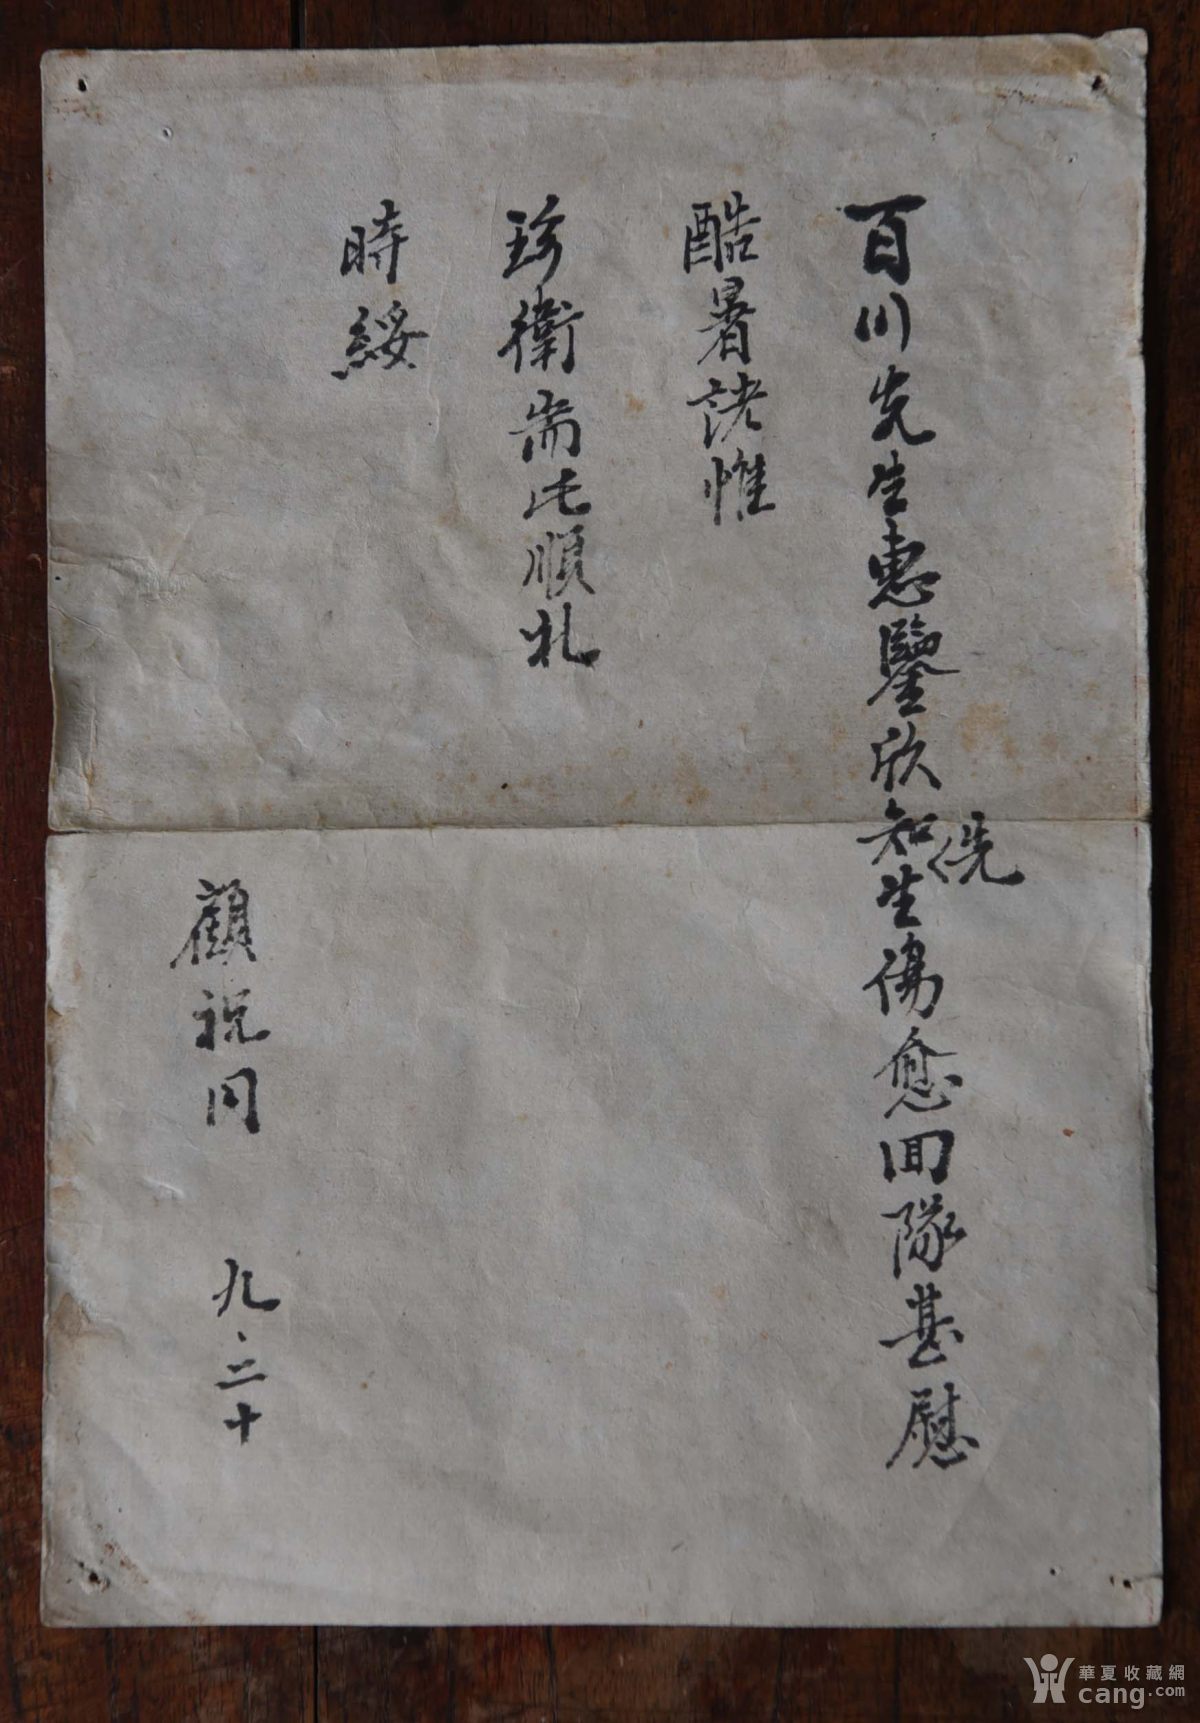 百川先生惠鑒欣知先生傷愈回隊甚慰
酷暑諸惟
珍衛耑此順札
時綏
顧祝同
九、二十
華夏收藏網
cang.com